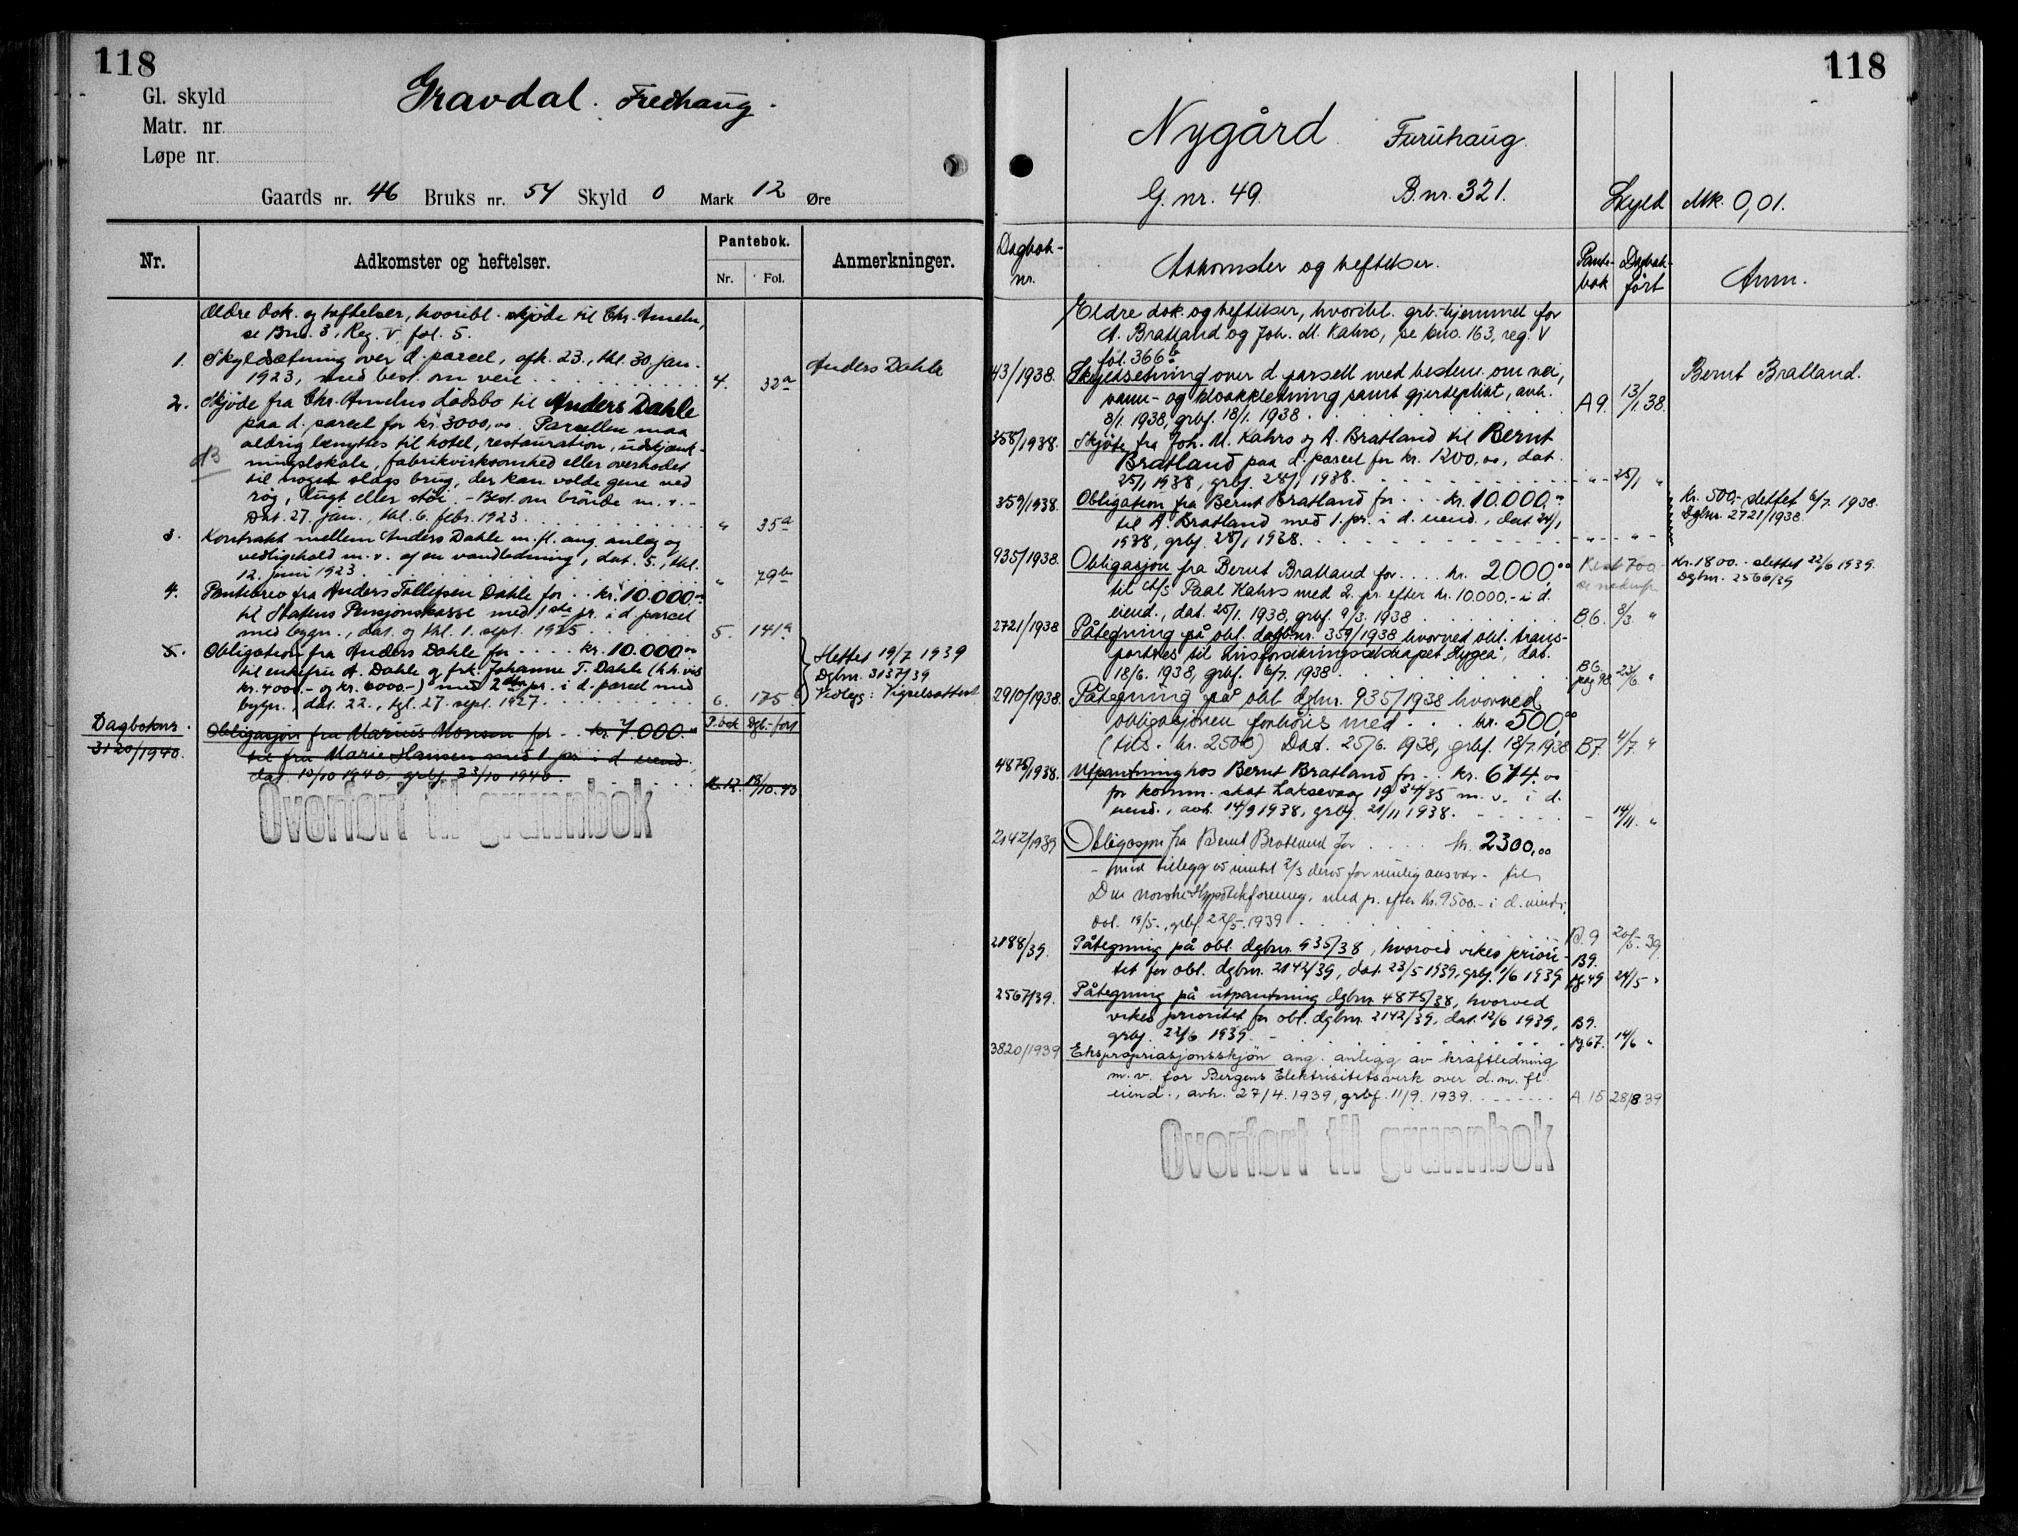 118
Gl. skyld
Matr. nr.
Løpe nr.
Gravdal. Fredhaug.
Gaards nr. 46 Bruks nr. 54 Skyld 0 Mark 12 Øre
Nr.
Adkomster og heftelser.
Pantebok.
Nr. Fol.
Anmerkninger.
Ældre dok. og heftelser, hvoribl. skjøde til Chr. Ameln,
se Bno. 3, Reg. V. fol. 5.
1. Skyldsætning over d. parcel, afh. 23., thl. 30. jan.
1923, med best. om veie 4. 32a Anders Dahle
2. Skjøde fra Chr. Amelns dødsbo til Anders Dahle
paa d. parcel for kr. 3000,00. Parcellen maa
aldrig benyttes til hotel, restauration, utskjænk-
ningslokale, fabrikvirksomhed eller overhodet
til noget slags brug, der kan volde gene ved
røg, lugt eller støi. - Best. om brønde m. v. -
Dat. 27. jan., thl. 6. febr. 1923. " 35a
3. Kontrakt mellem Anders Dahle m. fl. ang. anlæg og
vedligehold m. v. af en vandledning, dat. 5., thl.
12. juni 1923 " 79b
4. Pantebrev fra Anders Tollefsen Dahle for kr. 10.000.00
til Statens Pensjonskasse med 1ste pr. i d. parcel
med bygn., dat. og thl. 1. sept. 1925 5. 141a
5. Obligation fra Anders Dahle for kr. 10.000.00
til enkefru A. Dahle og frk. Johanne T. Dahle (hh.vis
kr. 4000.- og kr. 6000.-) med 2den pr. i d. parcel med
bygn., dat. 22., tgl. 27. sept. 1927. 6. 175
Slettet 19/7 1939
Dgbnr. 3137/39
Vedlegg: Vigselsattest
Dagboknr. P.bok Dgb.-ført
3120/1940. Obligasjon fra Marius Monsen for kr. 7000.00
til fru Marie Hansen med 1 pr. i d. eiend.
dat. 10/10 1940, grbf. 23/10 1940. B.12. 18/10.40
Overført til grunnbok
118
Nygård. Furuhaug.
G. nr. 49. B. nr. 321. Skyld Mk. 0,01.
Dagbok-
nr.
Adkomster og heftelser.
Pante-
bok
Dagbok-
ført
Anm.
Eldre dok. og heftelser, hvoribl. grb.-hjemmel for
A. Bratland og Joh. M. Kahrs, se bno. 163, reg. V
fol. 366b
43/1938. Skyldsetning over d. parsell med bestem. om vei,
vann- og kloakkledning samt gjerdeplikt, avh.
8/1. 1938, grbf. 18/1. 1938 A 9. 13/1.38. Bernt Bratland.
358/1938. Skjøte fra Joh. M. Kahrs og A. Bratland til Bernt
Bratland paa d. parcel for kr. 1200,00, dat.
25/1 1938, grbf. 28/1 1938. - " - 25/1 "
359/1938. Obligation fra Bernt Bratland for kr. 10.000.00
til A. Bratland med 1. pr. i d. eiend., dat 24/1
1938, grbf. 28/1 1938. - " - - " -
Kr. 500,- slettet 6/7. 1938.
Dgbnr. 2721/1938.
935/1938. Obligasjon fra Bernt Bratland for kr. 2000,00
til A/S Paal Kahrs med 2. pr. efter kr. 10.000.- i d.
eiend., dat. 25/1. 1938, grbf. 9/3. 1938 B6. 8/3. "
Rest 700.-
Kr. 1800.- slettet 22/6 1939.
Dgbnr. 2566/39
2721/1938 Påtegning på obl. dagbnr. 359/1938 hvorved obl. trans-
porteres til Livsforsikringsselskapet „Hygea", dat.
18/6. 1938, grbf. 6/7. 1938 B6. pag 98 23/6 "
2910/1938. Påtegning på obl dgbnr. 935/1938 hvorved
obligasjonen forhøies med kr. 500,00
(tils. kr. 2500) Dat. 25/6. 1938, grbf. 18/7.1938 B7. 4/7. "
4875/1938. Utpantning hos Bernt Bratland for kr. 674.00
for komm. skat Laksevaag 1934/35 m. v. i d.
eiend., avh. 14/9 1938, grbf. 21/11 1938. - 14/11. "
2142/1939 Obligasjon fra Bernt Bratland for kr. 2300,00
- med tillegg av inntil 2/3 derav for mulig ansvar - til
Den Norske Hypotekforening, med pr. efter Kr. 9500.- i d. eiend.,
dat. 19/5., grbf. 22/5. 1939 B. 9 20/5. 39.
2188/39. Påtegning på obl. dgbnr. 935/38, hvorved vikes priori-
tet for obl. dgbnr. 2142/39, dat. 23/5 1939, grbf. 1/6 1939 B9. pg 49 24/5 "
2567/39. Påtegning på utpantning dgbnr. 4875/38, hvorved
vikes prioritet for obl. dgbnr. 2142/39, dat. 12/6 1939,
grbf. 22/6 1939. B9. pg 67. 14/6 "
3820/1939 Ekspropriasjonsskjøn ang. anlegg av kraftledning
m. v. for Bergens Elektrisitetsverk over d. m. fl.
eiend., avh. 27/4. 1939, grbf. 11/9. 1939 A. 15 28/8 39
Overført til grunnbok